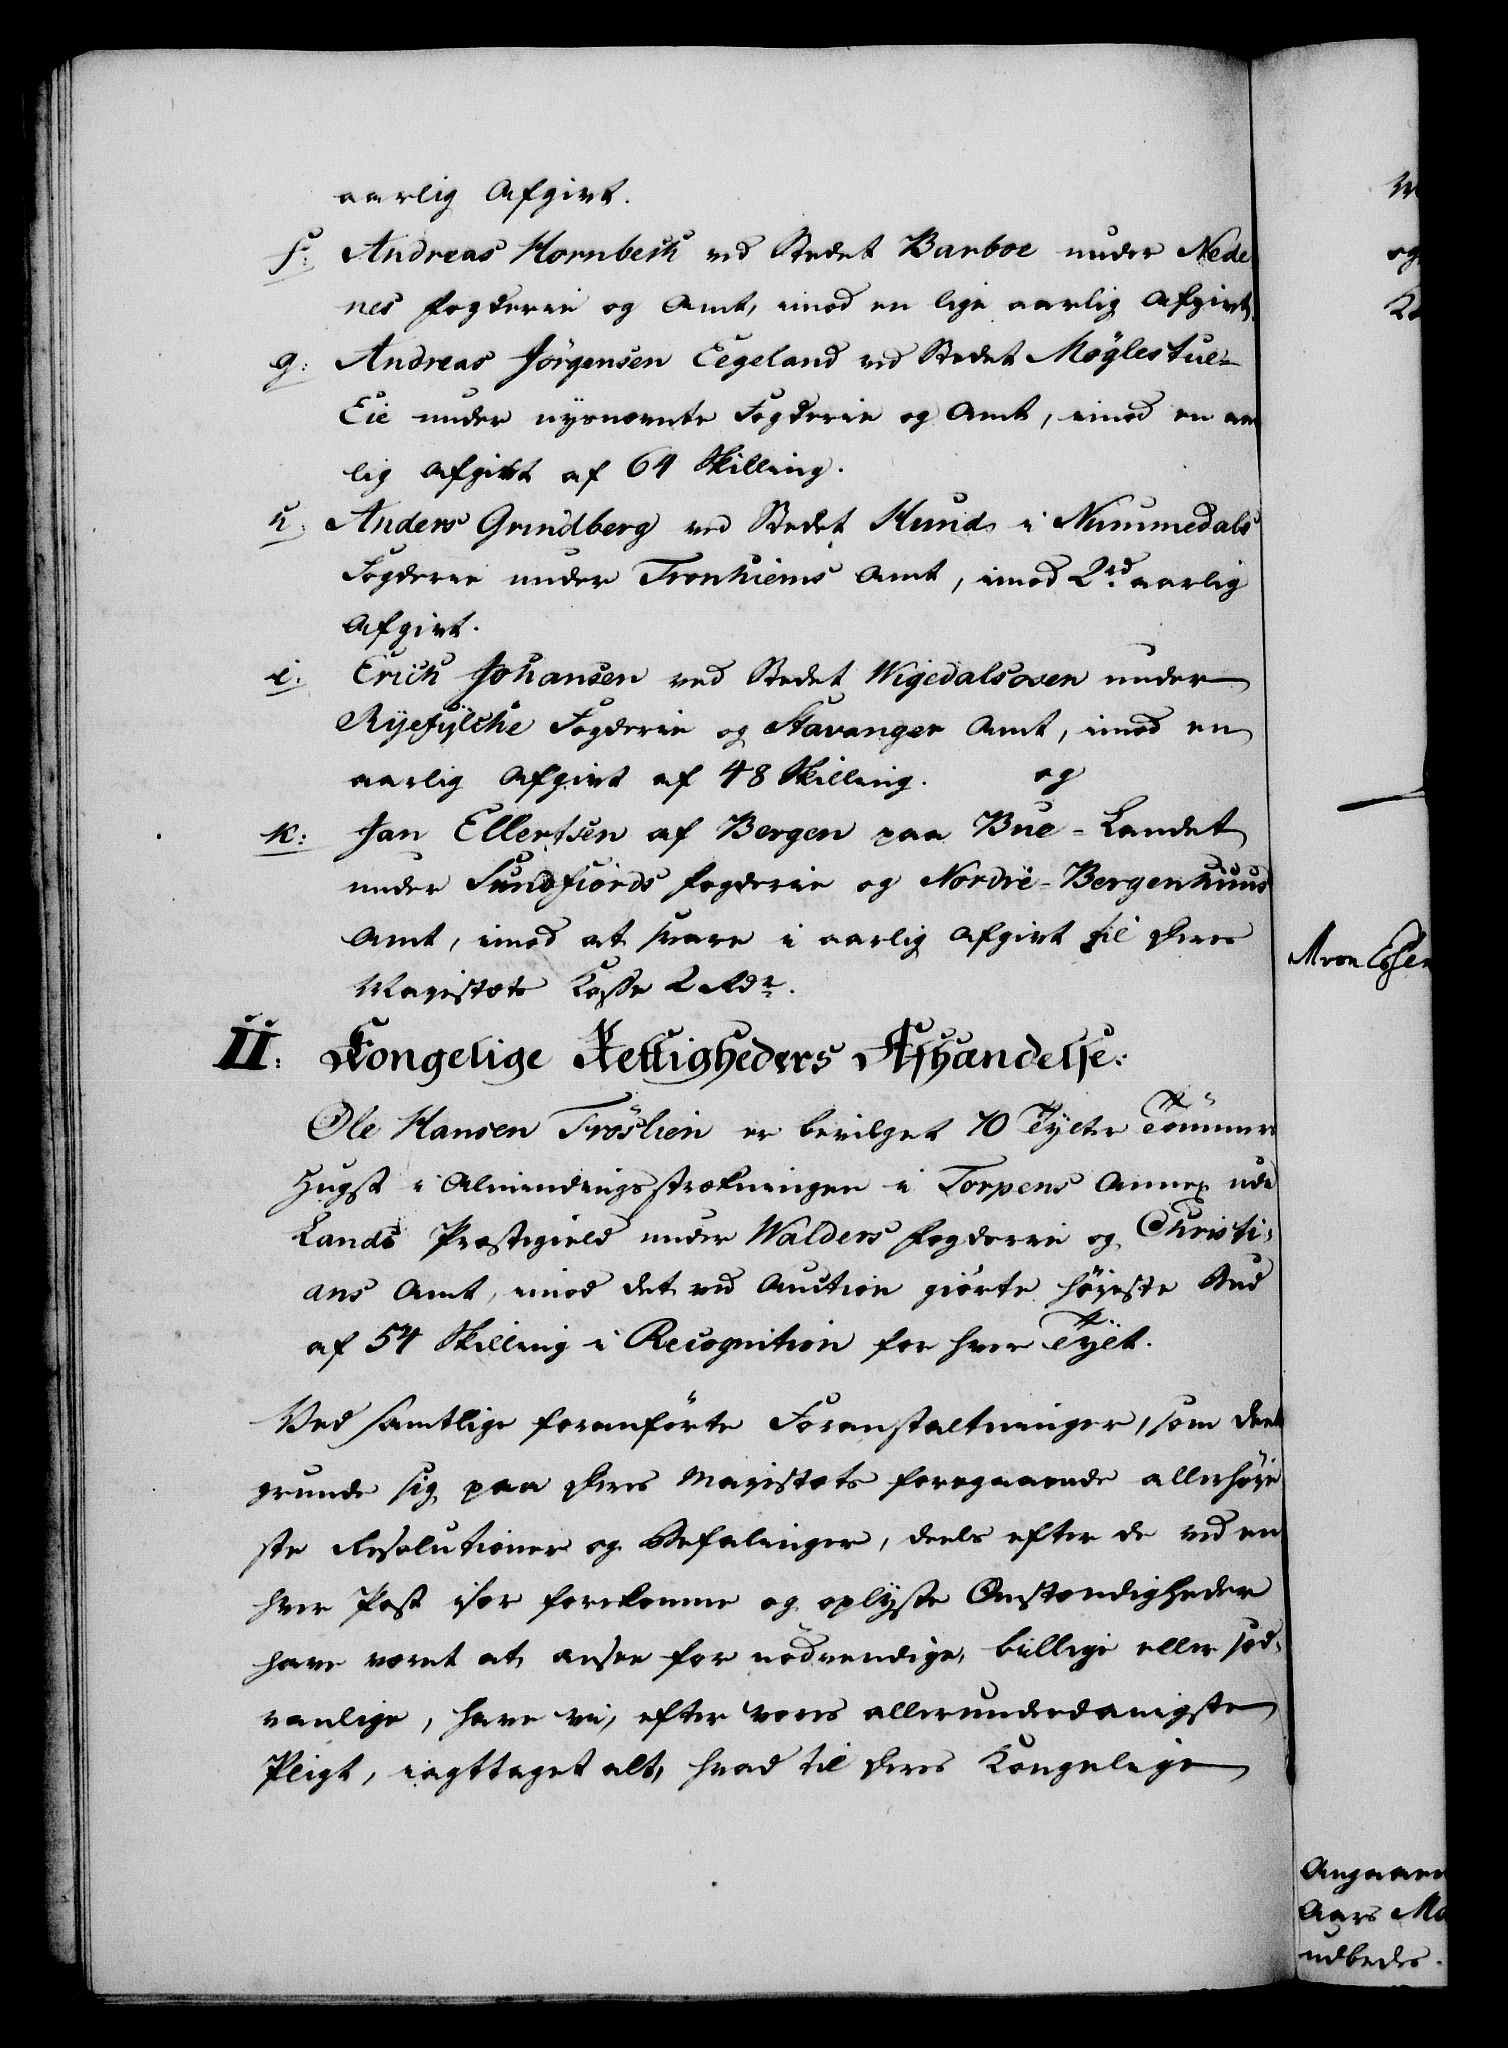 aarlig Afgivt.
f: Andreas Hornbeck ved Stedet Barboe under Nede
nes Fogderie og Amt, imod en lige aarlig Afgivt.
g: Andreas Jörgensen Eegeland ved Stedet Møglestue-
Eie under nysnævnte Fogderie og Amt, imod en aar
lig Afgivt af 64 Skilling.
h: Anders Grundberg ved Stedet Hund i Nummedals
Fogderie under Tronhiems Amt, imod 2 rd. aarlig
Afgivt.
i. Erich Johansen ved Stedet Wigedalsosen under
Ryefylche Fogderie og Stavanger Amt, imod en
aarlig Afgivt af 48 Skilling. og
k: Jan Ellertsen af Bergen paa Bue-Landet
under Sundfiords Fogderie og Nordre-Bergenhuus
Amt, imod at svare i aarlig Afgivt til Deres
Majestæts Kasse 2 Rdr.
II: Kongelige Rettigheders Afhændelse:
Ole Hansen Fröslien er bevilget 70 Tylter Tömmer
Hugst i Almindingsstrækningen i Torpens Annex udi
Lands Præstegield under Walders Fogderie og Christi-
ans Amt, imod det ved Auction giorte höjeste Bud
af 54 Skilling i Recognition for hver Tylt.
Ved samtlige foranförte Foranstaltninger, som deels
grunde sig paa Deres Majestæts foregaaende allerhöje
ste Resolutioner og Befalinger, deels efter de ved en
hver Post især forekomne og oplyste Omstændigheder
have været at ansee for nödvendige, billige eller sæd-
vanlige, have vi, efter vores allerunderdanigste
Pligt, iagttaget alt, hvad til Deres Kongelige
Angaaen
Aars Ma
udbedes.